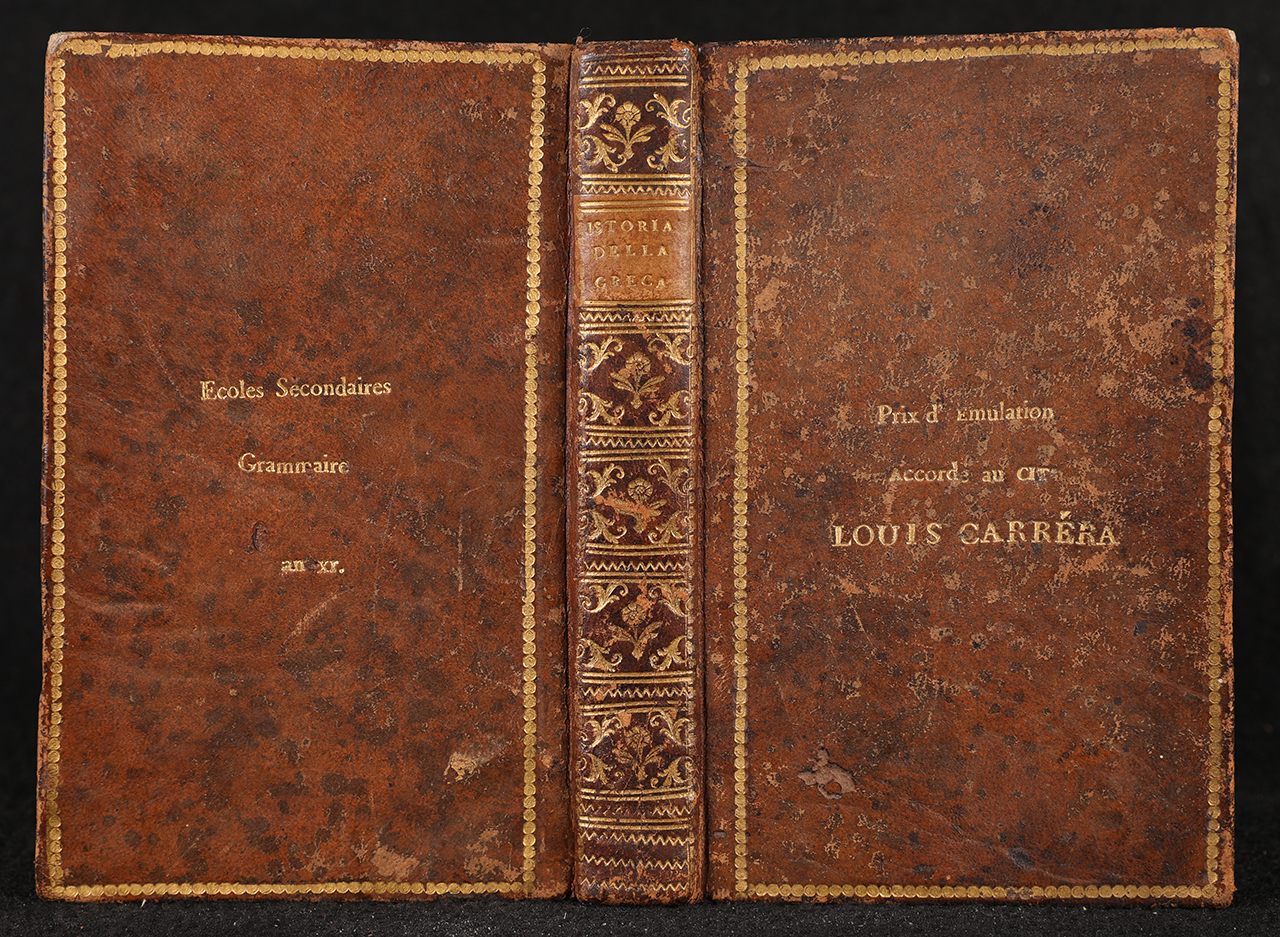 Ecoles Secondaires
Grammaire
an xr.
ISTORIA
DELLA
GRECA
Prix d' Emulation
Accorde au CITN
LOUIS CARRÉRA